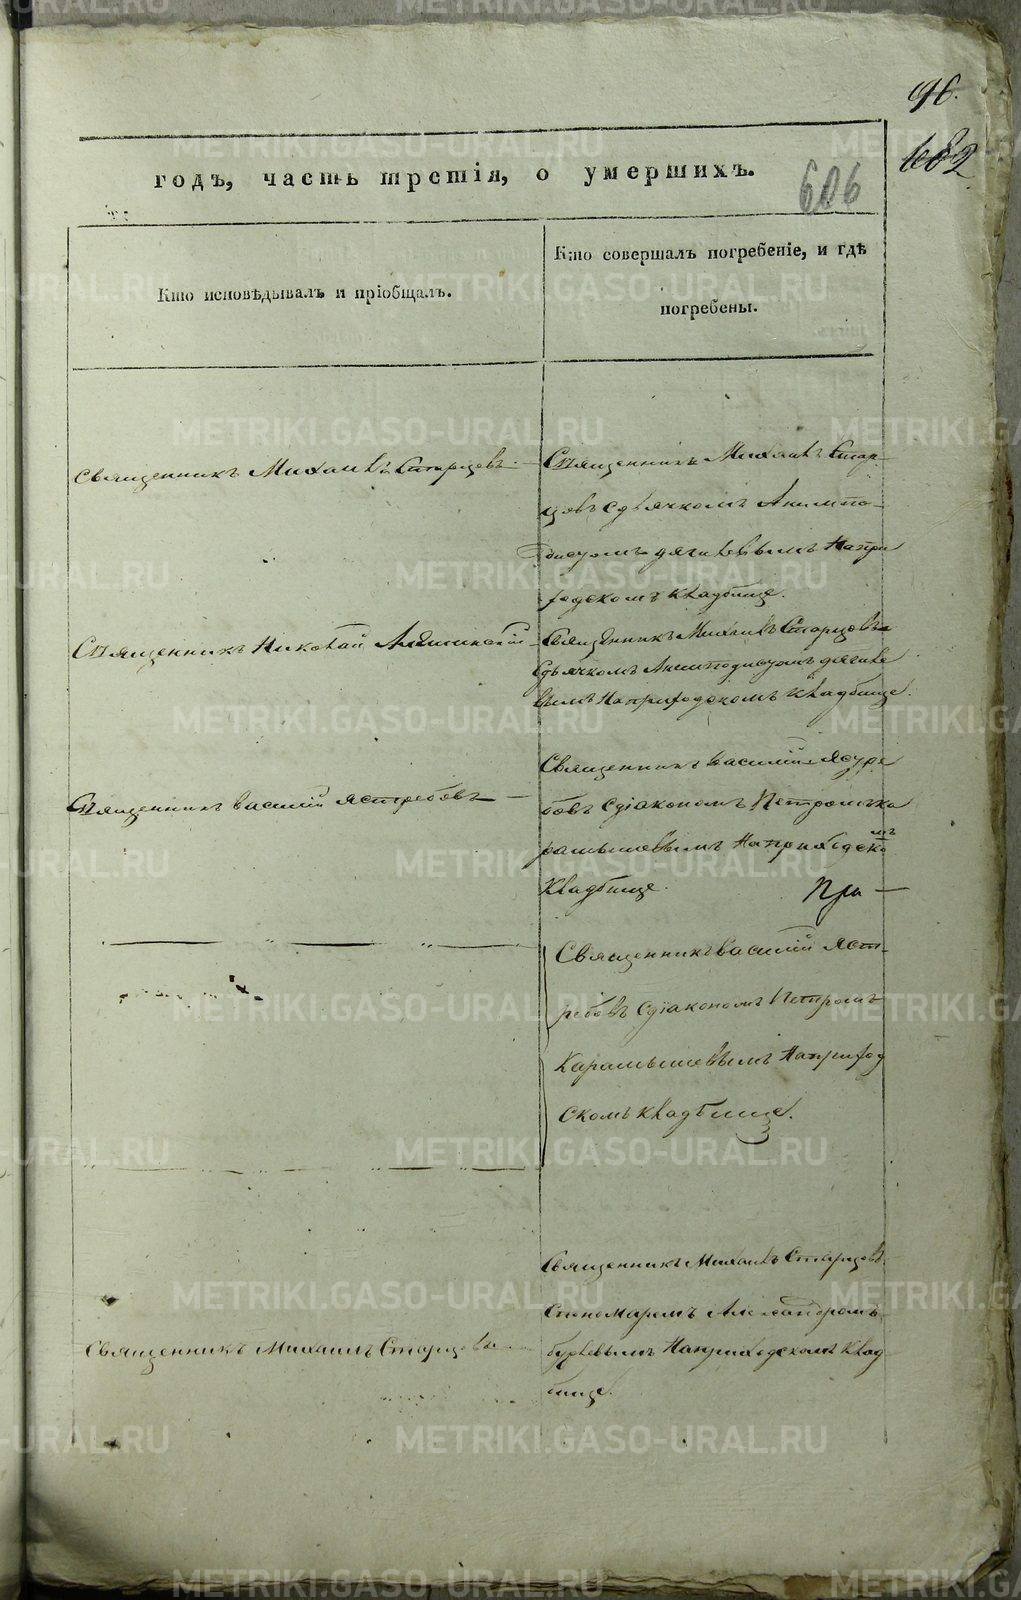 96.
1082
606
годъ, часть третія, о умершихъ.
Кто исповѣдывалъ и пріобщалъ.
Кто совершалъ погребеніе, и гдѣ
погребены.
Священникъ Михаилъ Старцовъ.
Священникъ Михаилъ Стар-
цовъ съ дьячкомъ Анемпо-
дистомъ Дягилевымъ На при
ходскомъ кладбище.
Священникъ Николай
Священникъ Михаилъ Старцовъ
съ дьячкомъ Анемподистомъ Дягиле
вымъ На приходскомъ кладбище.
Священникъ Василій Ястребовъ
Священникъ Василій Ястре
бовъ с діакономъ Петромъ Ка
рамышевымъ На приходско
мъ
кладбище. При
Священникъ Василій Яст-
ребовъ с діакономъ Петромъ
Карамышевымъ На приход
скомъ кладбище.
Священникъ Михаилъ Старцовъ
Священникъ Михаилъ Старцовъ
с пономаремъ Александромъ
На приходскомъ клад
бище.
METRIKI.GASO-URAL.RU